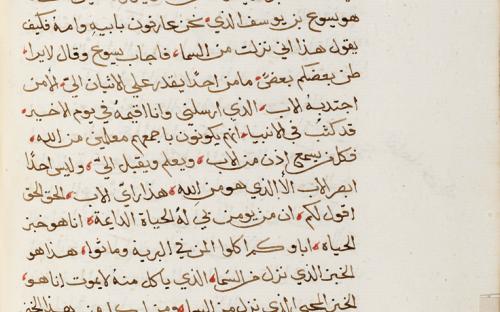 هو يسوع بن يوسف الذي نحن عارفون بابيه وامه فكيف
يقول هذا اني نزلت من السما، فاجاب يسوع وقال لا يراطن
بعضكم بعضٌ، ما من احدٍ يقدر علي الاتيان اليّ، الا من
اجتذبه الاب، الذي ارسلني وانا اقيمه في يوم الاخير،
قد كتب في الانبيا، انهم يكونون باجمعهم معلمين من الله،
فكل من يسمع اذن من الاب، ويعلم ويقبل اليّ، وليس احدًا
ابصر الاب الا الذي هو من الله، هذا راي الاب، الحق الحق
اقول لكم، ان من يومن بي له الحياة الدايمة، انا هو خبز
الحياة، اباوكم اكلوا المن في البرية وماتوا، هذا هو
الخبز الذي نزل من السما، الذي ياكل منه لا يموت انا هو،
الخبز المحيي الذي نزل من السما، ومن اكل من هذا الخبز